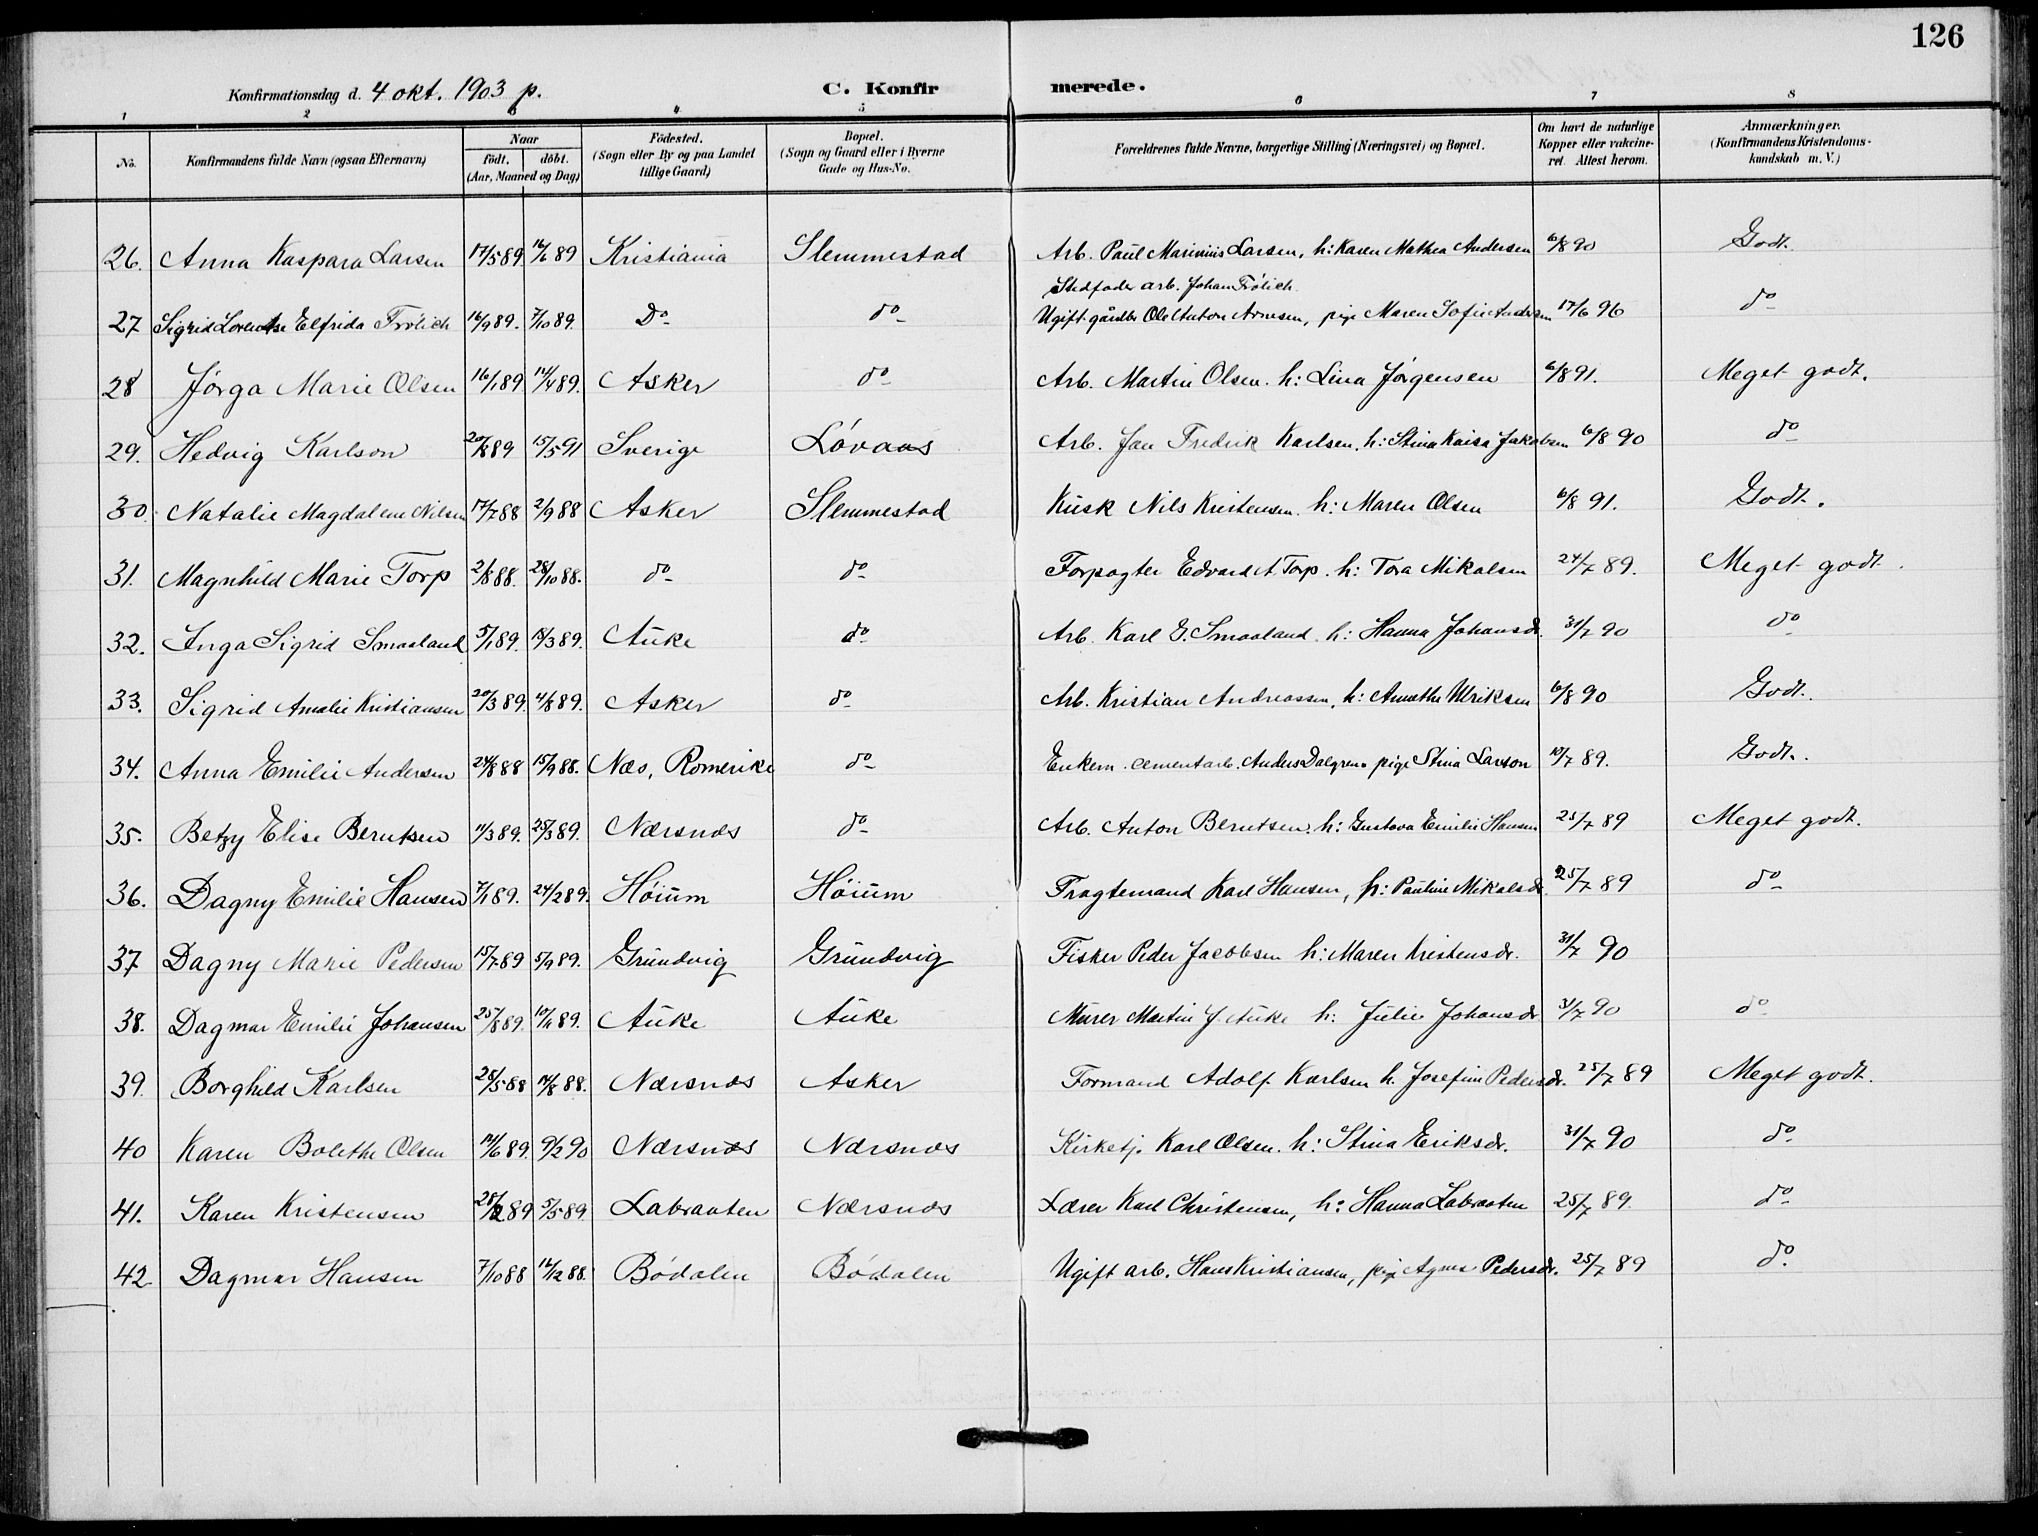 126
Konfirmationsdag d. 4 okt. 1903 p. C. Konfirmerede.
1 2 3 4 5 6 7 8
No. Konfirmandens fulde Navn (ogsaa Efternavn) Naar födt. döbt. (Aar, Maaned og Dag) Födested. (Sogn eller By og paa Landet tillige Gaard) Bopæl. (Sogn og Gaard eller i Byerne Gade og Hus-No. Forældrenes fulde Navne, borgerlige Stilling (Næringsvei) og Bopæl. Om havt de naturlige Kopper eller vakcineret. Attest herom. Anmærkninger. (Konfirmandens Kristendomskundskab m. V.)
26. Anna Kaspara Larsen 17/5 89. 16/6 89 Kristiania Slemmestad Arb. Paul Marinius Larsen, h: Karen Mathea Andersen 6/8 90 Godt.
Stedfader arb. Johan Frölich
27 Sigrid Lorentse Elfrida Frölich 16/9 89. 7/10 89. Do do Ugift gårdbr Ole Anton Arnesen, pige Maren Sofie Andersen 17/6 96 do
28 Jörga Marie Olsen 16/1 89 14/4 89. Asker do Arb. Martin Olsen. h: Lina Jörgensen 6/8 91. Meget godt.
29. Hedvig Karlson 20/8 89 15/5 91 Sverige Lövaas Arb. Jan Fredrik Karlsen. h: Stina Kaisa Jakobsen 6/8 90 do
30. Natalie Magdalene Nilsen 17/7 88 2/9 88 Asker Slemmestad Kusk Nils Kristensen. h: Maren Olsen 6/8 91. Godt.
31. Magnhild Marie Torp 2/8 88. 28/10 88. do do Forpagter Edvard A. Torp. h: Tora Mikalsen 24/7 89. Meget godt.
32. Inga Sigrid Smaaland 5/1 89. 18/3 89. Auke do Arb. Karl G. Smaaland. h: Hanna Johansdr. 31/7 90 do
33. Sigrid Amalie Kristiansen 20/3 89. 4/8 89. Asker do Arb. Kristian Andreassen, h: Amathe Ulriksen 6/8 90 Godt.
34. Anna Emilie Andersen 24/8 88 15/9 88. Næs, Romerike do Enkem. cementarb. Anders Dalgren pige Stina Larson 10/7 89. Godt.
35. Betzy Elise Berntsen 11/3 89. 25/3 89. Nærsnes do Arb. Anton Berntsen. h: Gustava Emilie Hansen 25/7 89 Meget godt.
36. Dagny Emilie Hansen 7/1 89. 24/2 89. Höium Höium Fragtemand Karl Hansen, h: Pauline Mikalsdr. 25/7 89 do
37 Dagny Marie Pedersen 15/7 89 5/9 89. Grundvig Grundvig Fisker Peder Jacobsen h: Maren Kristensdr. 31/7 90
38. Dagmar Emilie Johansen 25/8 89. 10/11 89. Auke Auke Murer Martin J. Auke h: Julie Johansdr. 31/7 90 do
39. Borghild Karlsen 28/5 88 12/8 88. Nærsnes Asker Formand Adolf Karlsen h. Josefine Pedersdr. 25/7 89 Meget godt.
40 Karen Bolethe Olsen 12/6 89. 9/2 90 Nærsnes Nærsnes Kirketj. Karl Olsen. h: Stina Eriksdr. 31/7 90 do
41. Karen Kristensen 28/2 89 5/5 89. Labraaten Nærsnes Lærer Karl Christensen, h: Hanna Labraaten 25/7 89. do
42 Dagmar Hansen 7/10 88 16/12 88. Bödalen Bödalen Ugift arb. Hans Kristiansen, pige Agnes Pedersdr. 25/7 89 do.